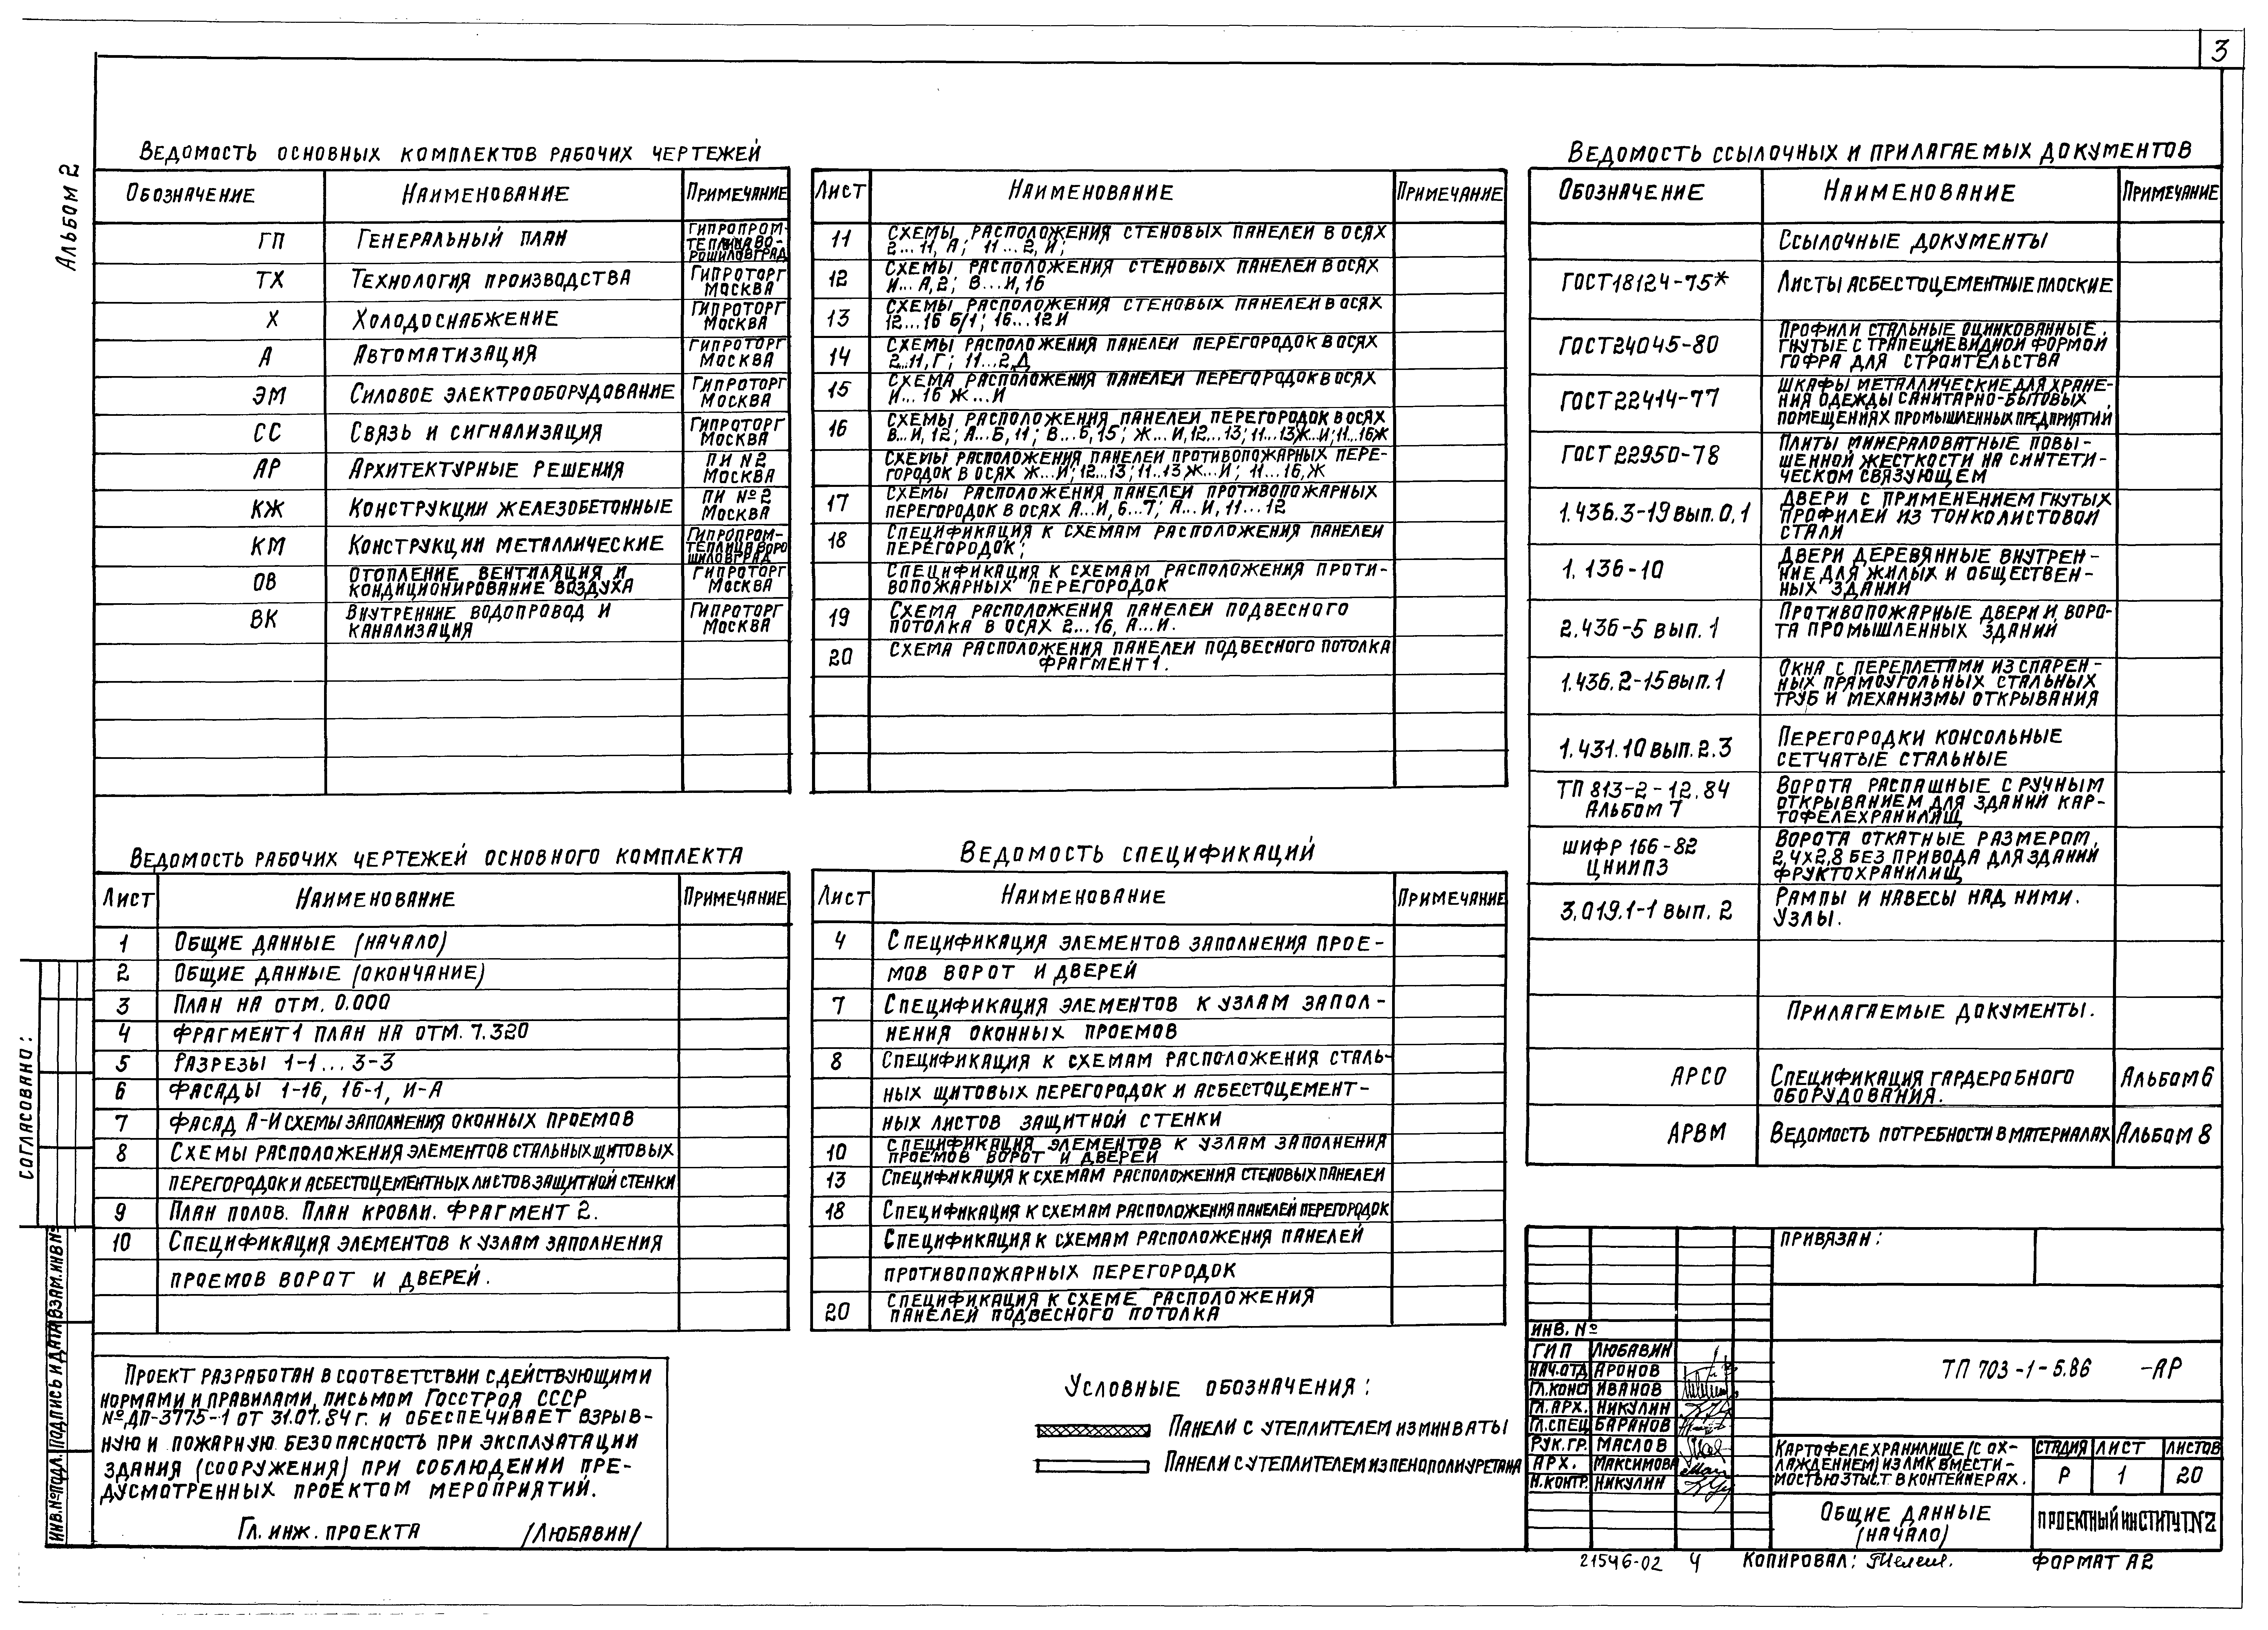 3
Альбом 2
Ведомость основных комплектов рабочих чертежей
Обозначение Наименование Примечание
ГП Генеральный план Гипропром-
теплица Во-
рошиловград
ТХ Технология производства Гипроторг
Москва
Х Холодоснабжение Гипроторг
Москва
А Автоматизация Гипроторг
Москва
ЭМ Силовое электрооборудование Гипроторг
Москва
СС Связь и сигнализация Гипроторг
Москва
АР Архитектурные решения ПИ N2
Москва
КЖ Конструкции железобетонные ПИ №2
Москва
КМ Конструкции металлические Гипропром-
теплица Воро
шиловград
ОВ Отопление вентиляция и
кондиционирование воздуха Гипроторг
Москва
ВК Внутренние водопровод и
канализация Гипроторг
Москва
Ведомость рабочих чертежей основного комплекта
Лист Наименование Примечание
1 Общие данные (начало)
2 Общие данные (окончание)
3 План на отм. 0.000
4 Фрагмент 1 план на отм. 7.320
5 Разрезы 1-1 ... 3-3
6 Фасады 1-16, 16-1, И-А
7 Фасад А-И схемы заполнения оконных проемов
8 Схемы расположения элементов стальных щитовых
перегородок и асбестоцементных листов защитной стенки
9 План полов. План кровли. Фрагмент 2.
10 Спецификация элементов к узлам заполнения
проемов ворот и дверей.
Проект разработан в соответствии с действующими
нормами и правилами, письмом Госстроя СССР
№ ДП-3775-1 от 31.07.84г. и обеспечивает взрыв-
ную и пожарную безопасность при эксплуатации
здания (сооружения) при соблюдении пре-
дусмотренных проектом мероприятий.
Гл. инж. проекта /Любавин/
Лист Наименование Примечание
11 Схемы расположения стеновых панелей в осях
2...11, А; 11...2, И;
12 Схемы расположения стеновых панелей в осях
И...А,2; В...И,16
13 Схемы расположения стеновых панелей в осях
12...16 Б/1; 16...12 И
14 Схемы расположения панелей перегородок в осях
2...11, Г; 11...2, Д
15 Схема расположения панелей перегородок в осях
И...16 Ж...И
16 Схемы расположения панелей перегородок в осях
В...И, 12; А...Б, 11; В...Б, 15; Ж...И, 12...13; 11...13 Ж...И; 11...16 Ж
Схемы расположения панелей противопожарных пере-
городок в осях Ж...И; 12...13; 11..13 Ж...И; 11...16, Ж
17 Схемы расположения панелей противопожарных
перегородок в осях А...И, 6...7; А...И, 11...12
18 Спецификация к схемам расположения панелей
перегородок;
Спецификация к схемам расположения проти-
вопожарных перегородок
19 Схема расположения панелей подвесного
потолка в осях 2...16, А...И.
20 Схема расположения панелей подвесного потолка
Фрагмент 1.
Ведомость спецификаций
Лист Наименование Примечание
4 Спецификация элементов заполнения прое-
мов ворот и дверей
7 Спецификация элементов к узлам запол-
нения оконных проемов
8 Спецификация к схемам расположения сталь-
ных щитовых перегородок и асбестоцемент-
ных листов защитной стенки
10 Спецификация элементов к узлам заполнения
проемов ворот и дверей
13 Спецификация к схемам расположения стеновых панелей
18 Спецификация к схемам расположения панелей перегородок
Спецификация к схемам расположения панелей
противопожарных перегородок
20 Спецификация к схеме расположения
панелей подвесного потолка
Условные обозначения:
Панели с утеплителем из минваты
Панели с утеплителем из пенополиуретана
Ведомость ссылочных и прилагаемых документов
Обозначение Наименование Примечание
Ссылочные документы
ГОСТ 18124-75* Листы асбестоцементные плоские
ГОСТ 24045-80 Профили стальные оцинкованные,
гнутые с трапециевидной формой
гофра для строительства
ГОСТ 22414-77 Шкафы металлические для хране-
ния одежды санитарно-бытовых
помещениях промышленных предприятий
ГОСТ 22950-78 Плиты минераловатные повы-
шенной жесткости на синтети-
ческом связующем
1.436.3-19 вып. 0,1 Двери с применением гнутых
профилей из тонколистовой
стали
1.136-10 Двери деревянные внутрен-
ние для жилых и обществен-
ных зданий
2.436-5 вып. 1 Противопожарные двери и воро-
та промышленных зданий
1.436.2-15 вып. 1 Окна с переплетами из спарен-
ных прямоугольных стальных
труб и механизмы открывания
1.431.10 вып. 2.3 Перегородки консольные
сетчатые стальные
ТП 813-2-12.84
Альбом 7 Ворота распашные с ручным
открыванием для зданий кар-
тофелехранилищ
шифр 166-82
ЦНИИПЗ Ворота откатные размером,
2,4х2,8 без привода для зданий
фруктохранилищ
3.019.1-1 вып. 2 Рампы и навесы над ними.
Узлы.
Прилагаемые документы.
АРСО Спецификация гардеробного
оборудования. Альбом 6
АРВМ Ведомость потребности в материалах Альбом 8
Привязан:
Инв. №
ГИП Любавин
Нач.отд Аронов
Гл.конс Иванов
Гл.арх. Никулин
Гл.спец Баранов
Рук.гр. Маслов
Арх. Максимова
Н.контр. Никулин
ТП 703-1-5.86 -АР
Картофелехранилище (с ох-
лаждением) из ЛМК вмести-
мостью 3 тыс.т в контейнерах.
Стадия Лист Листов
Р 1 20
Общие данные
(начало)
Проектный институт N2
21546-02 4 Копировал: Формат А2
Согласовано:
Инв.№ подл. Подпись и дата Взам.инв№